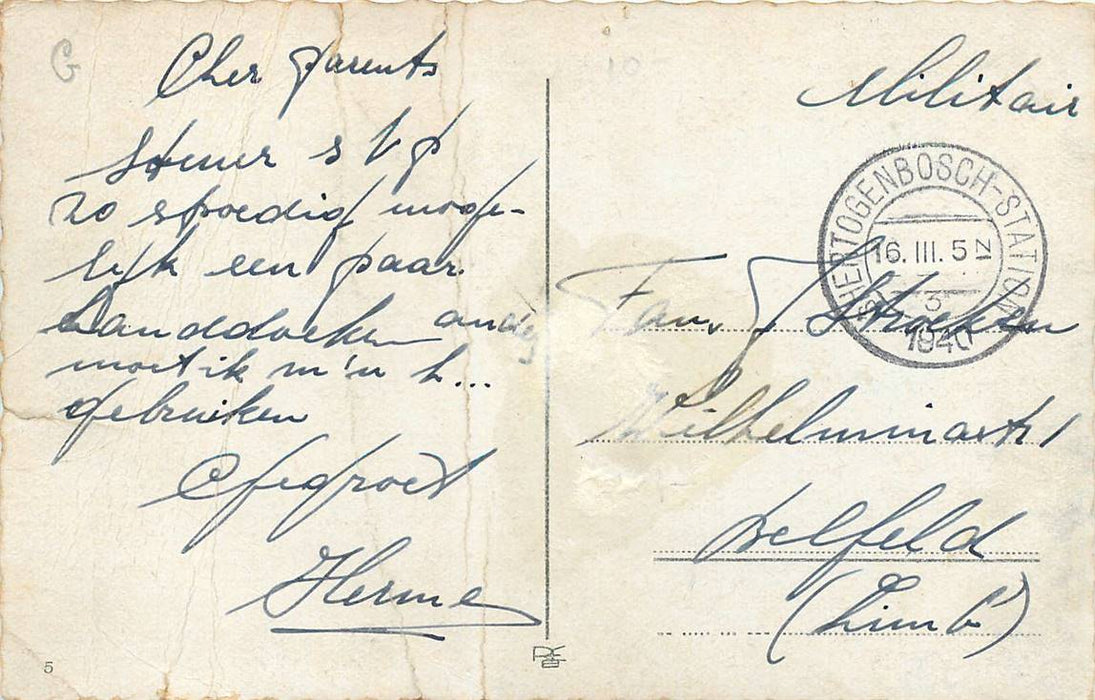 G
Cher parents
Stuur s v p
zo spoedig moge-
lijk een paar
handdoeken anders
moet ik m'n h...
gebruiken
Gegroet
Herme
5
Militair
'S HERTOGENBOSCH-STATION
16. III. 5 N
3
1940
Fam. J
Wilhelminastr 1
Belfeld
(Limb)